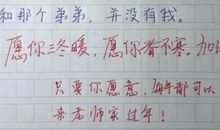 和那个弟弟，并没有我。
愿你三冬暖，愿你春不寒。加
只要你愿意，每年都可以
来老师家过年！